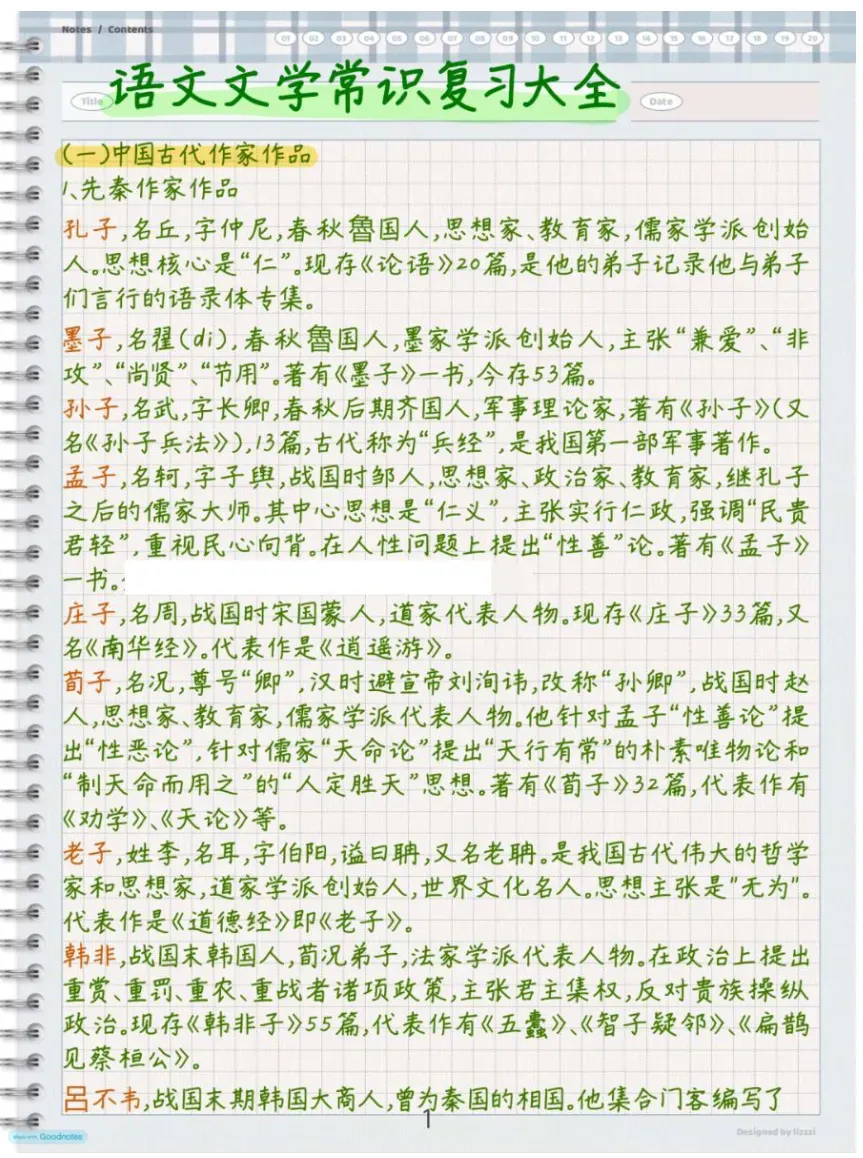 Notes / Contents
01 02 03 04 05 06 07 08 09 10 11 12 13 14 15 16 17 18 19 20
Title 语文文学常识复习大全 Date
(一)中国古代作家作品
1、先秦作家作品
孔子,名丘,字仲尼,春秋魯国人,思想家、教育家,儒家学派创始
人。思想核心是“仁”。现存《论语》20篇,是他的弟子记录他与弟子
们言行的语录体专集。
墨子,名翟(di),春秋魯国人,墨家学派创始人,主张“兼爱”、“非
攻”、“尚贤”、“节用”。著有《墨子》一书,今存53篇。
孙子,名武,字长卿,春秋后期齐国人,军事理论家,著有《孙子》(又
名《孙子兵法》),13篇,古代称为“兵经”,是我国第一部军事著作。
孟子,名轲,字子舆,战国时邹人,思想家、政治家、教育家,继孔子
之后的儒家大师。其中心思想是“仁义”,主张实行仁政,强调“民贵
君轻”,重视民心向背。在人性问题上提出“性善”论。著有《孟子》
一书。
庄子,名周,战国时宋国蒙人,道家代表人物。现存《庄子》33篇,又
名《南华经》。代表作是《逍遥游》。
荀子,名况,尊号“卿”,汉时避宣帝刘洵讳,改称“孙卿”,战国时赵
人,思想家、教育家,儒家学派代表人物。他针对孟子“性善论”提
出“性恶论”,针对儒家“天命论”提出“天行有常”的朴素唯物论和
“制天命而用之”的“人定胜天”思想。著有《荀子》32篇,代表作有
《劝学》、《天论》等。
老子,姓李,名耳,字伯阳,谥曰聃,又名老聃。是我国古代伟大的哲学
家和思想家,道家学派创始人,世界文化名人。思想主张是"无为"。
代表作是《道德经》即《老子》。
韩非,战国末韩国人,荀况弟子,法家学派代表人物。在政治上提出
重赏、重罚、重农、重战者诸项政策,主张君主集权,反对贵族操纵
政治。现存《韩非子》55篇,代表作有《五蠹》、《智子疑邻》、《扁鹊
见蔡桓公》。
吕不韦,战国末期韩国大商人,曾为秦国的相国。他集合门客编写了
1
Made with Goodnotes
Designed by lizzzi